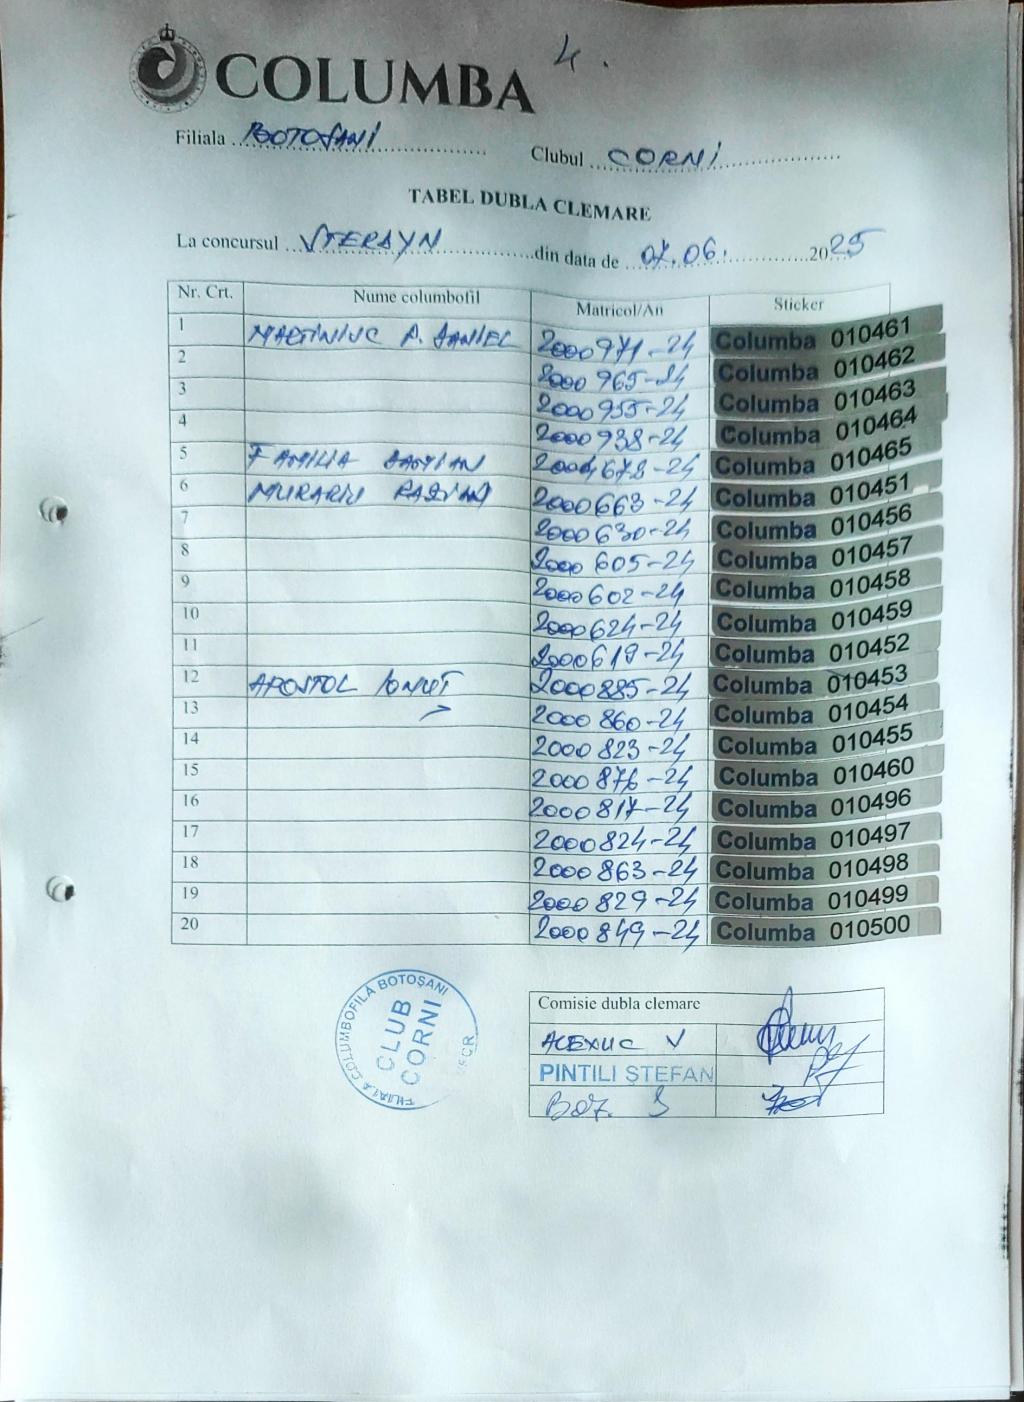 COLUMBA 4.
Filiala BOTOSANI Clubul CORNI
TABEL DUBLA CLEMARE
La concursul din data de 07.06. 2025
Nr. Crt. Nume columbofil Matricol/An Sticker
1 MARTINIUC P. DANIEL 2000971-24 Columba 010461
2 2000965-24 Columba 010462
3 2000955-24 Columba 010463
4 2000938-24 Columba 010464
5 FAMILIA DAMIAN 2004678-24 Columba 010465
6 MURARIU RAZVAN 2000663-24 Columba 010451
7 2000630-24 Columba 010456
8 2000605-24 Columba 010457
9 2000602-24 Columba 010458
10 2000624-24 Columba 010459
11 2000619-24 Columba 010452
12 APOSTOL IONUT 2000885-24 Columba 010453
13 2000860-24 Columba 010454
14 2000823-24 Columba 010455
15 2000876-24 Columba 010460
16 2000817-24 Columba 010496
17 2000824-24 Columba 010497
18 2000863-24 Columba 010498
19 2000829-24 Columba 010499
20 2000849-24 Columba 010500
FILIALA COLUMBOFILĂ BOTOȘANI
CLUB
CORNI
Comisie dubla clemare
ALEXIUC V
PINTILI ȘTEFAN